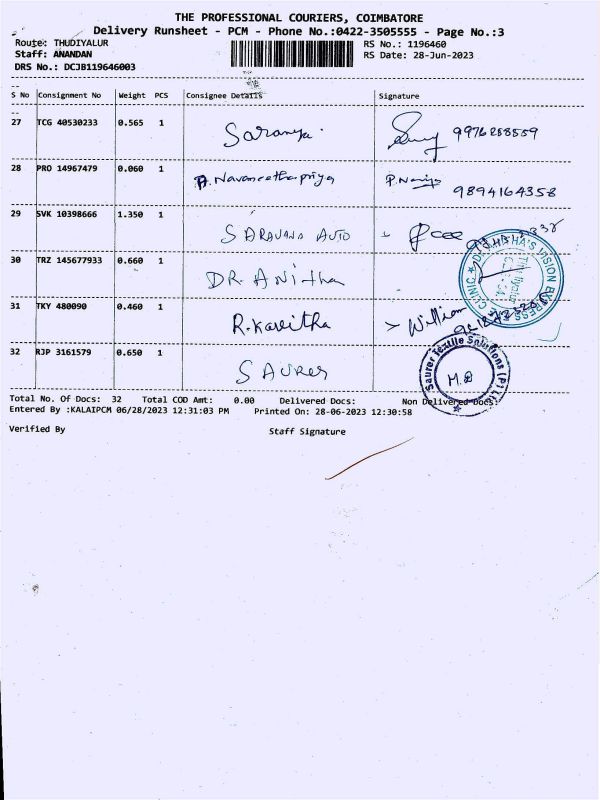 THE PROFESSIONAL COURIERS, COIMBATORE
Delivery Runsheet - PCM - Phone No.:0422-3505555 - Page No.:3
Route: THUDIYALUR RS No.: 1196460
Staff: ANANDAN RS Date: 28-Jun-2023
DRS No.: DCJB119646003
S No Consignment No Weight PCS Consignee Details Signature
27 TCG 40530233 0.565 1 Saranya. 9976288559
28 PRO 14967479 0.060 1 P. Navaneethapriya 9894164358
29 SVK 10398666 1.350 1 SARAVANA AUTO
30 TRZ 145677933 0.660 1 DR. Anitha
31 TKY 480090 0.460 1 R. Kavitha William
32 RJP 3161579 0.650 1 SAURER
Saurer Textile Solutions (P) Ltd
Total No. Of Docs: 32 Total COD Amt: 0.00 Delivered Docs: Non Delivered Docs:
Entered By :KALAIPCM 06/28/2023 12:31:03 PM Printed On: 28-06-2023 12:30:58
Verified By Staff Signature